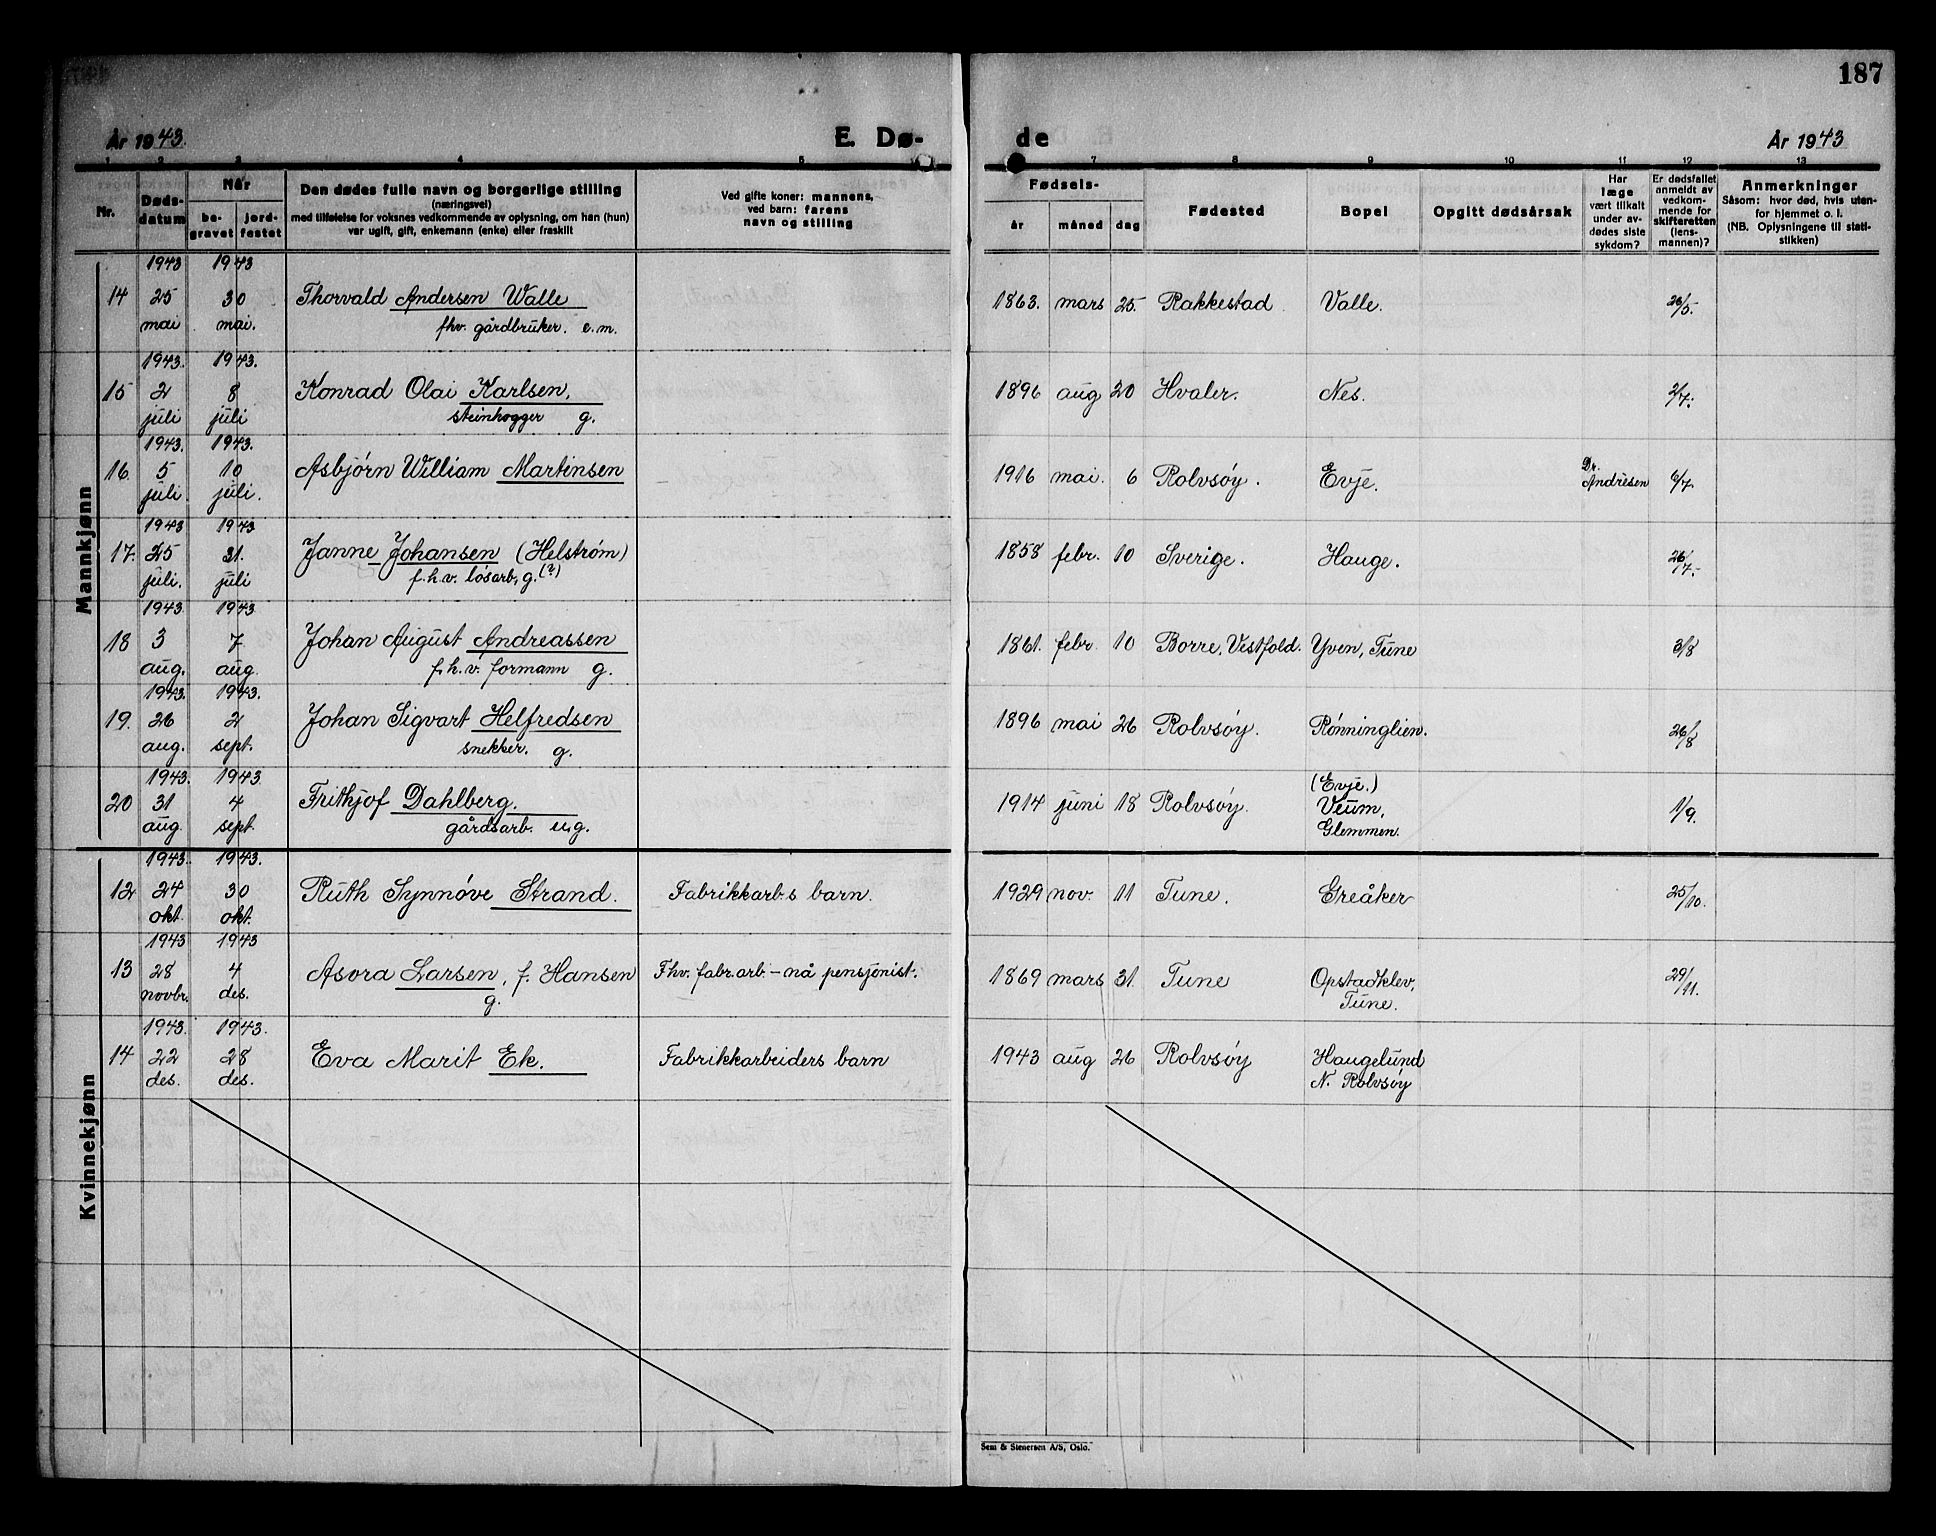 187
År 1943.
E. Dø-
de
År 1943
1 2 3 4 5 7 8 9 10 11 12 13
Nr.
Døds-
datum
Når
be-
gravet
jord-
festet
Den dødes fulle navn og borgerlige stilling
(næringsvei)
med tilføielse for voksnes vedkommende av oplysning, om han (hun)
var ugift, gift, enkemann (enke) eller fraskilt
Ved gifte koner: mannens,
ved barn: farens
navn og stilling
Fødsels-
år måned dag
Fødested
Bopel
Opgitt dødsårsak
Har
læge
vært tilkalt
under av-
dødes siste
sykdom?
Er dødsfallet
anmeldt av
vedkom-
mende for
skifteretten
(lens-
mannen)?
Anmerkninger
Såsom: hvor død, hvis uten-
for hjemmet o. l.
(NB. Oplysningene til stati-
stikken)
Mannkjønn
1943 1943
14 25 30 Thorvald Andersen Walle 1863. mars 25. Rakkestad Valle. 26/5.
mai mai. fhv. gårdbruker. e.m.
1943. 1943.
15 2 8 Konrad Olai Karlsen, 1896 aug 20 Hvaler. Nes. 2/7.
juli juli steinhogger g.
1943. 1943.
16. 5 10 Asbjørn William Martinsen 1916 mai. 6 Rolvsøy. Evje. Dr. Andresen 6/7.
juli. juli.
1943 1943
17. 25 31. Janne Johansen (Helstrøm) 1858 febr. 10 Sverige. Hauge. 26/7.
juli. juli f.h.v. løsarb, g. (?)
1943. 1943
18 3 7 Johan August Andreassen 1861. febr. 10 Borre, Vestfold. Yven, Tune 3/8
aug. aug. f.h.v. formann g.
1943. 1943.
19. 26 2 Johan Sigvart Helfredsen 1896 mai 26 Rolvsøy. Rønninglien. 26/8
aug. sept. snekker. g.
1943. 1943. (Evje.)
20 31 4 Frithjof Dahlberg. 1914 juni 18 Rolvsøy. Veum, 1/9.
aug. sept. gårdsarb. ug. Glemmen.
Kvinnekjønn
1943. 1943.
12 24 30 Ruth Synnøve Strand. Fabrikkarb.s barn. 1929 nov. 11 Tune. Greåker 25/10.
okt. okt.
1943 1943
13 28 4 Asora Larsen, f. Hansen Fhv. fabr.arb. - nå pensjonist. 1869 mars 31. Tune Opstadklev, 29/11.
novbr. des. g. Tune.
1943. 1943.
14 22 28 Eva Marit Ek. Fabrikkarbeiders barn 1943 aug 26 Rolvsøy Haugelund
des. des. N. Rolvsøy
Sem & Stenersen A/S, Oslo.